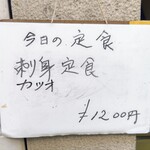 今日の定食
刺身定食
カツオ
¥1200円